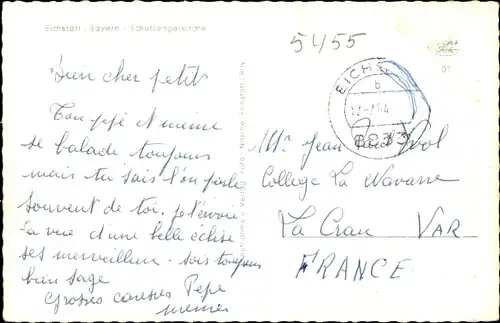 Eichstätt - Bayern - Schutzengelkirche
5455
EICHS
b
12
01
Bien cher petit
Ton pepé et meme
se balade toujours
mais tu sais l'on parle
souvent de toi. je t'envoie
La vue d'une belle église
ses merveilleux. sois toujours
bien sage
Grosses caresses Pepe
memee
Mr. Jean Paul
College La Navarre
La Crau VAR
FRANCE